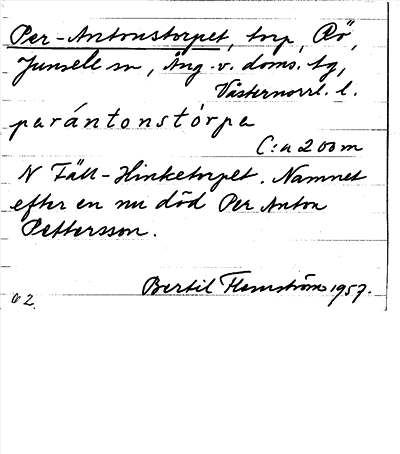 Per-Antonstorpet, torp, Rö,
Junsele sn, Ång. v. doms. tg,
Västernorrl. l.
parántonstórpa
C:a 200 m
N Fäll-Hinketorpet. Namnet
efter en nu död Per Anton
Pettersson.
Bertil Flemström 1957.
a 2.